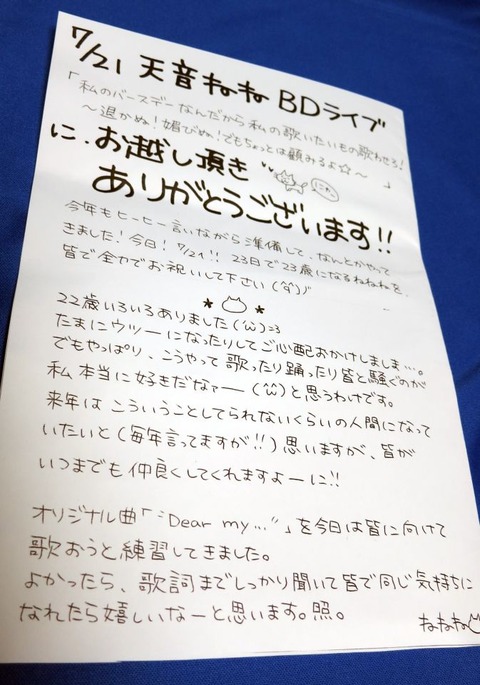 7/21 天音ねね BDライブ
「私のバースデーなんだから私の歌いたいもの歌わせろ!
～退かぬ!媚びぬ!でもちょっとは顧みるよ☆～」
に、お越し頂き
ありがとうございます!!
今年もヒーヒー言いながら準備して、なんとかやって
きました!今日!7/21!! 23日で23歳になるねねねを、
皆で全力でお祝いして下さい
22歳いろいろありました(ω)=3
たまにウツーになったりしてご心配おかけしましま…。
でもやっぱり、こうやって歌ったり踊ったり皆と騒ぐのが
私本当に好きだなァーー(ω)と思うわけです。
来年はこういうことしてられないくらいの人間になって
いたいと(毎年言ってますが!!)思いますが、皆が
いつまでも仲良くしてくれますよーに!!
オリジナル曲「"Dear my…"」を今日は皆に向けて
歌おうと練習してきました。
よかったら、歌詞までしっかり聞いて皆で同じ気持ちに
なれたら嬉しいなーと思います。照。
ねねね